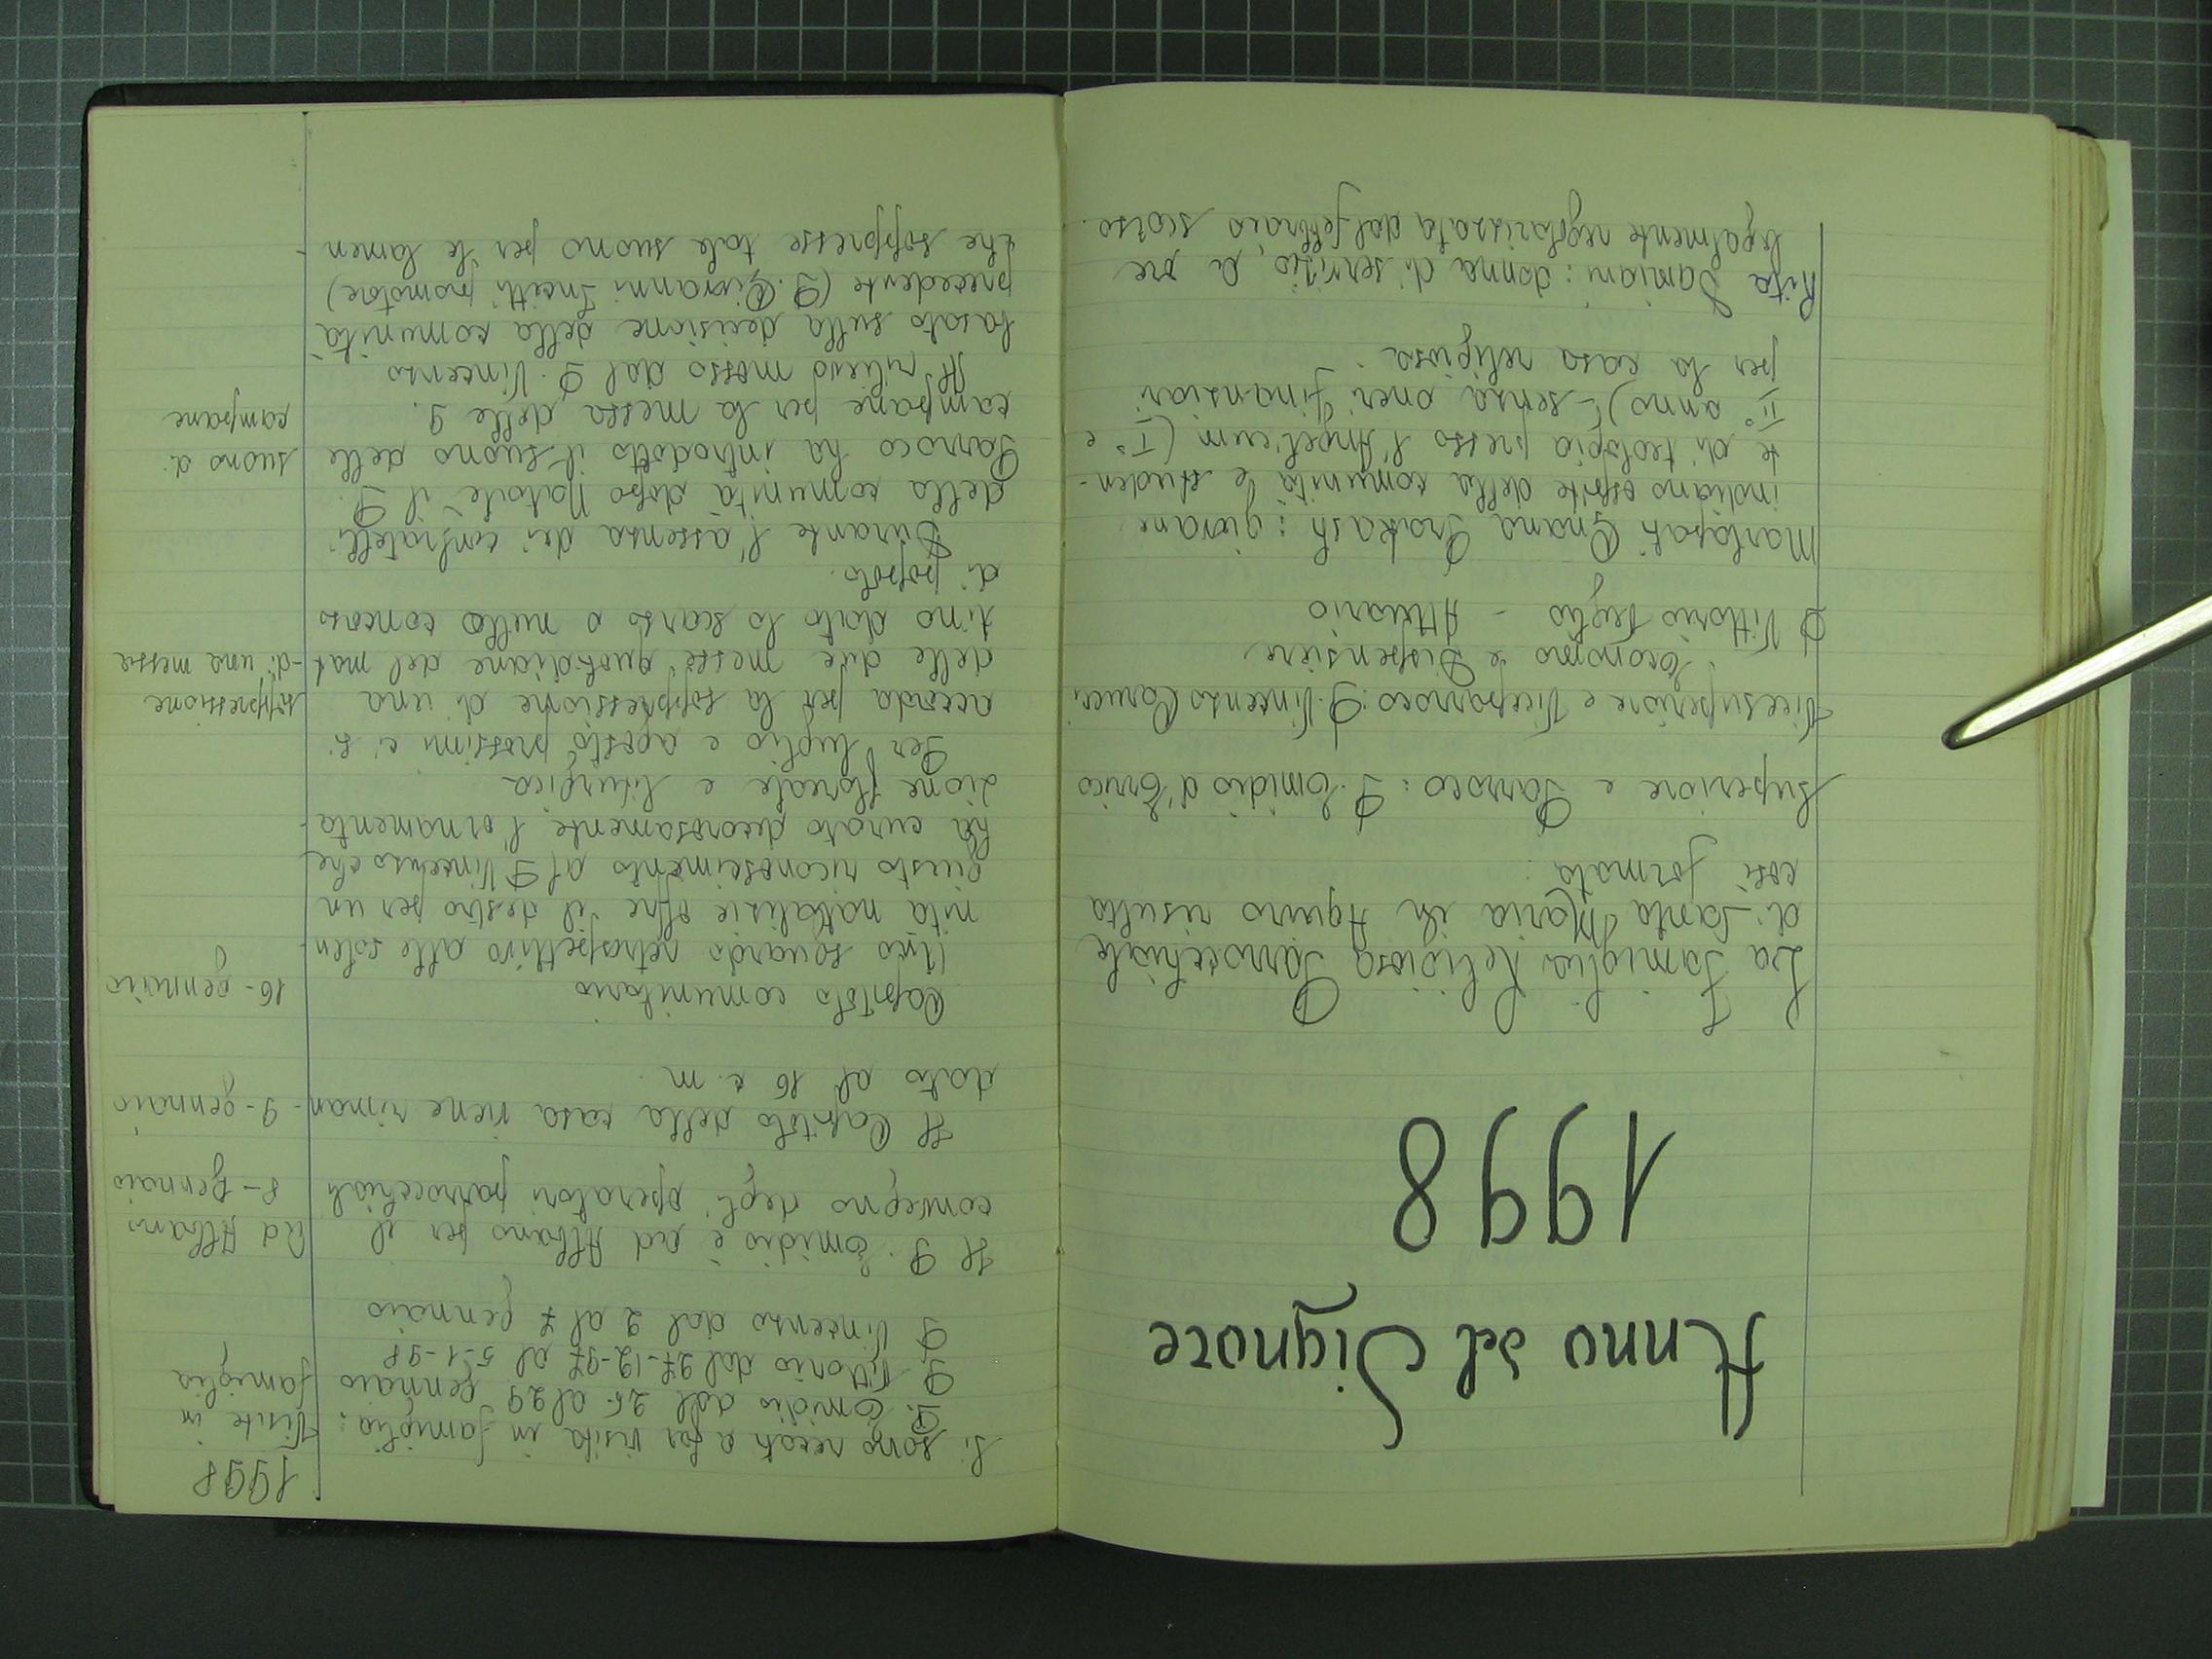 Anno del Signore
1998
La Famiglia Religiosa Parrocchiale
di Santa Maria in Aquiro risulta
così formata:
Superiore e Parroco: P. Emidio d'Errico
Vicesuperiore e Viceparroco: P. Vincenzo
Economo e Dispensiere
P Vittorio - Attuario
Gnana Prakash: giovane
indiano ospite della comunità e studen-
te di teologia presso l'Angelicum (I° e
II° anno) - senza oneri finanziari
per la casa religiosa.
Rita Damiani: donna di servizio, a ore
legalmente regolarizzata dal febbraio scorso.
1998
Si sono recati a far visita in famiglia:
Visite in
famiglia
P. Emidio dal 25 al 29 gennaio
P. Vittorio dal 27-12-97 al 5-1-98
P Vincenzo dal 2 al 7 gennaio
Il P. Emidio è ad Albano per il
Ad Albano
convegno degli operatori parrocchiali
8- gennaio
Il Capitolo della casa viene riman-
9- gennaio
dato al 16 c. m.
Capitolo comunitario
16- gennaio
Uno sguardo retrospettivo alle solen
nità natalizie offre il destro per un
giusto riconoscimento al P Vincenzo che
ha curato decorosamente l'ornamenta-
zione floreale e liturgica
Per luglio e agosto prossimi ci si
accorda per la soppressione di una
soppressione
delle due messe quotidiane del mat
di una messa
tino dato lo scarso o nullo concorso
di popolo.
Durante l'assenza dei confratelli
della comunità dopo Natale il P.
Parroco ha introdotto il suono delle
suono di
campane per la messa delle 9.
campane
Il rilievo mosso dal P. Vincenzo
basato sulla decisione della comunità
precedente (P. Giovanni promotore)
che soppresse tale suono per le lamen